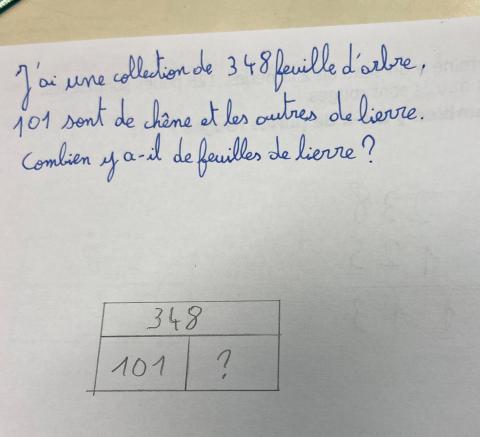 J'ai une collection de 348 feuille d'arbre.
101 sont de chêne et les autres de lierre.
Combien y a-il de feuilles de lierre ?
348
101 ?